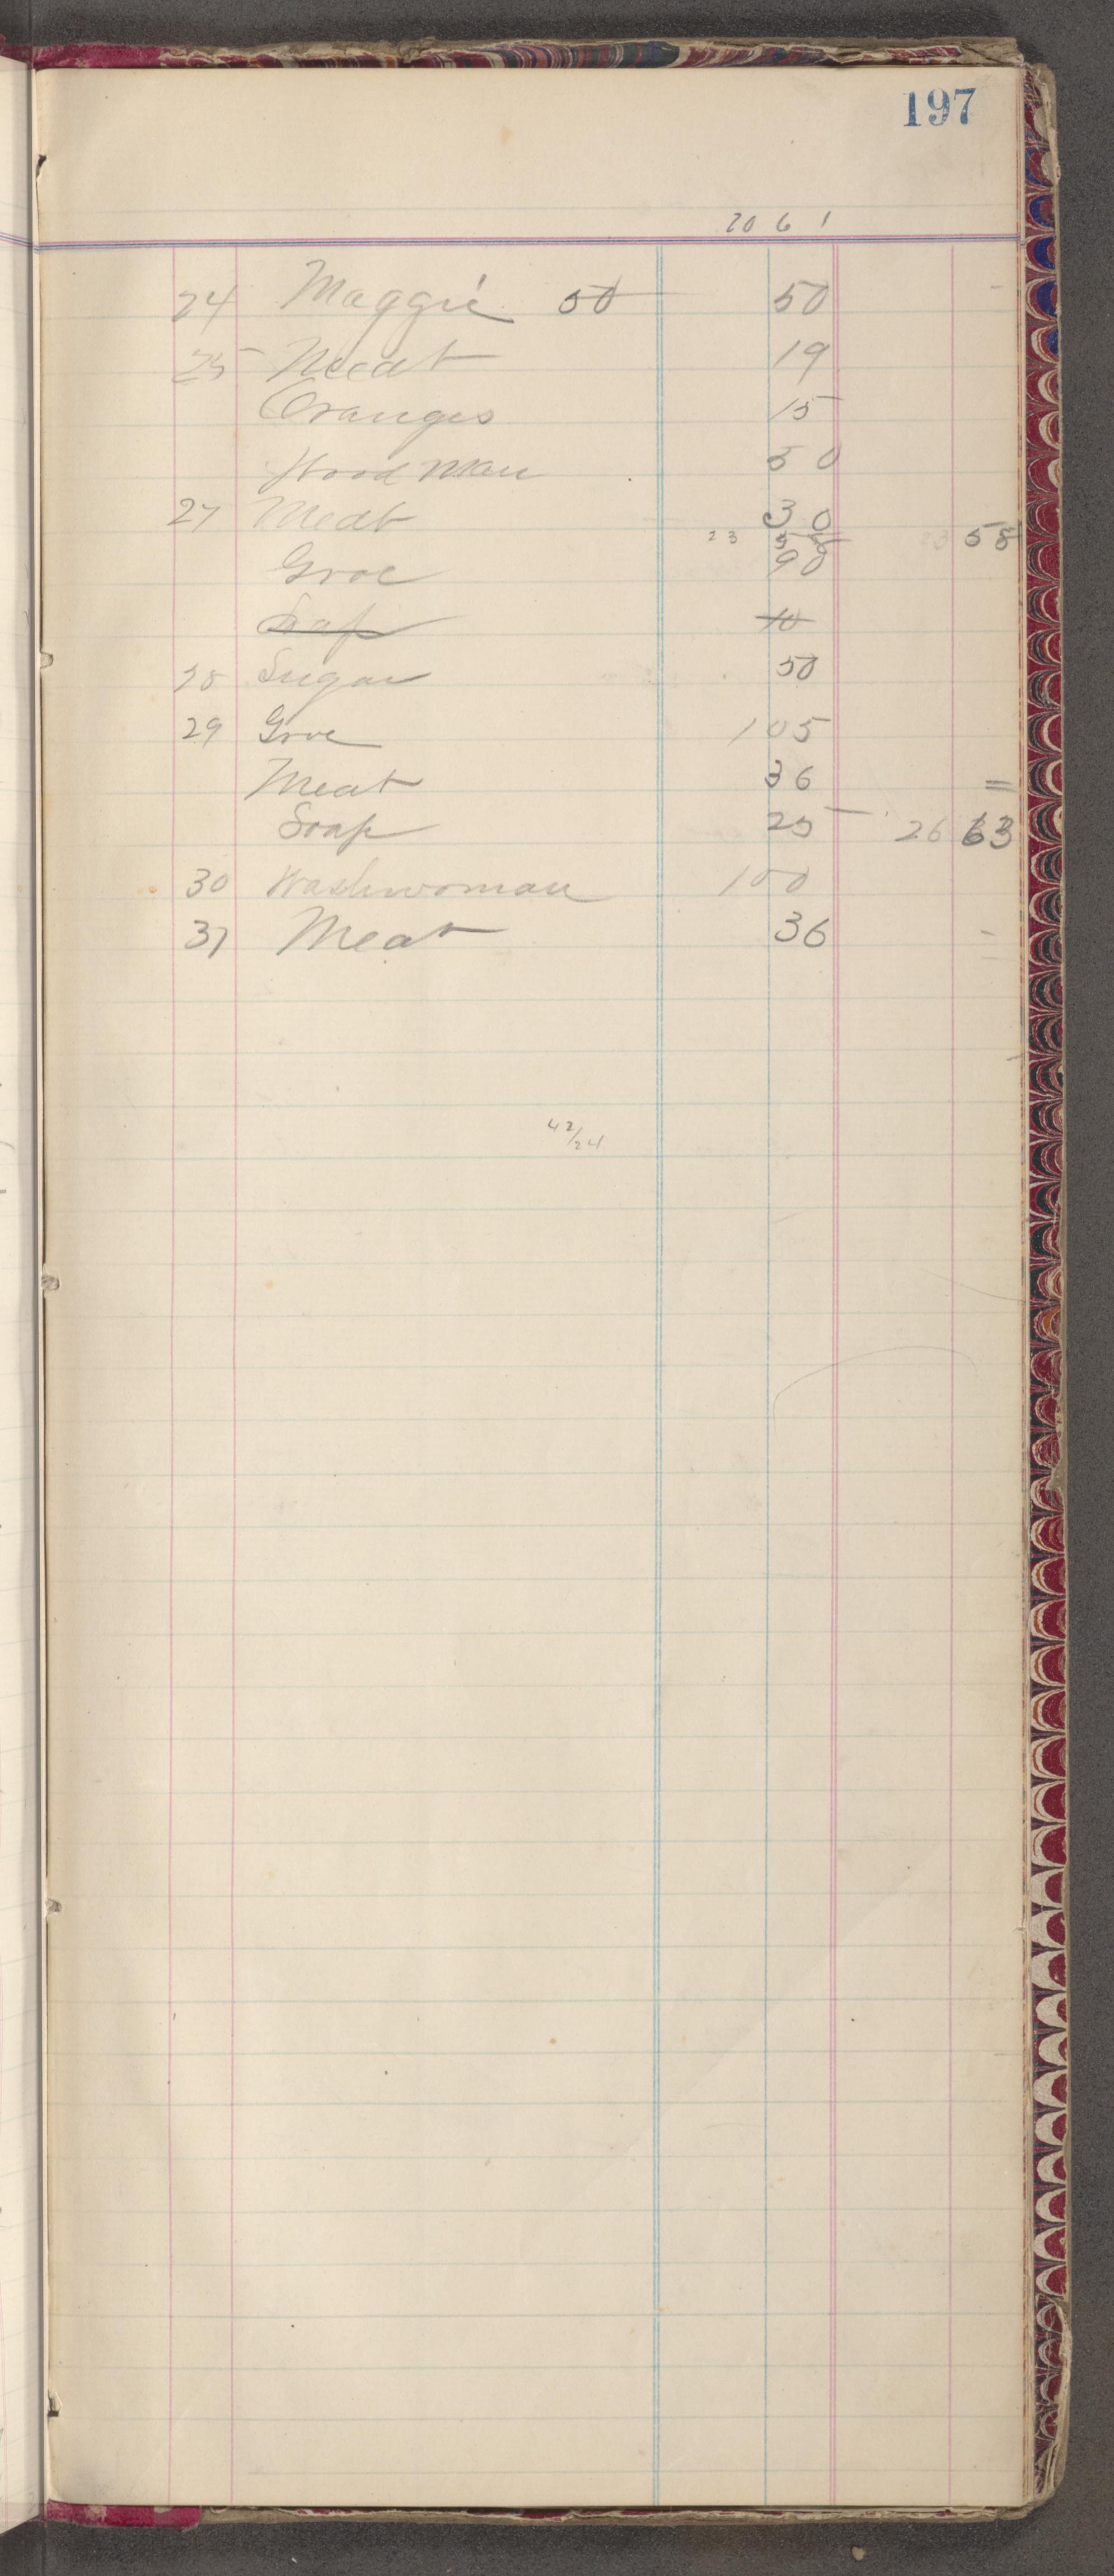 197
20 6 1
24 Maggie 50 50
25 Meat 19
Oranges 15
Wood Man 50
27 Meat 30
23 58 23 58
Groc 90
Soap 10
28 Sugar 50
29 Groc 1 05
Meat 36
Soap 25 — 26 63
30 Washwoman 1 00
31 Meat 36
42/24